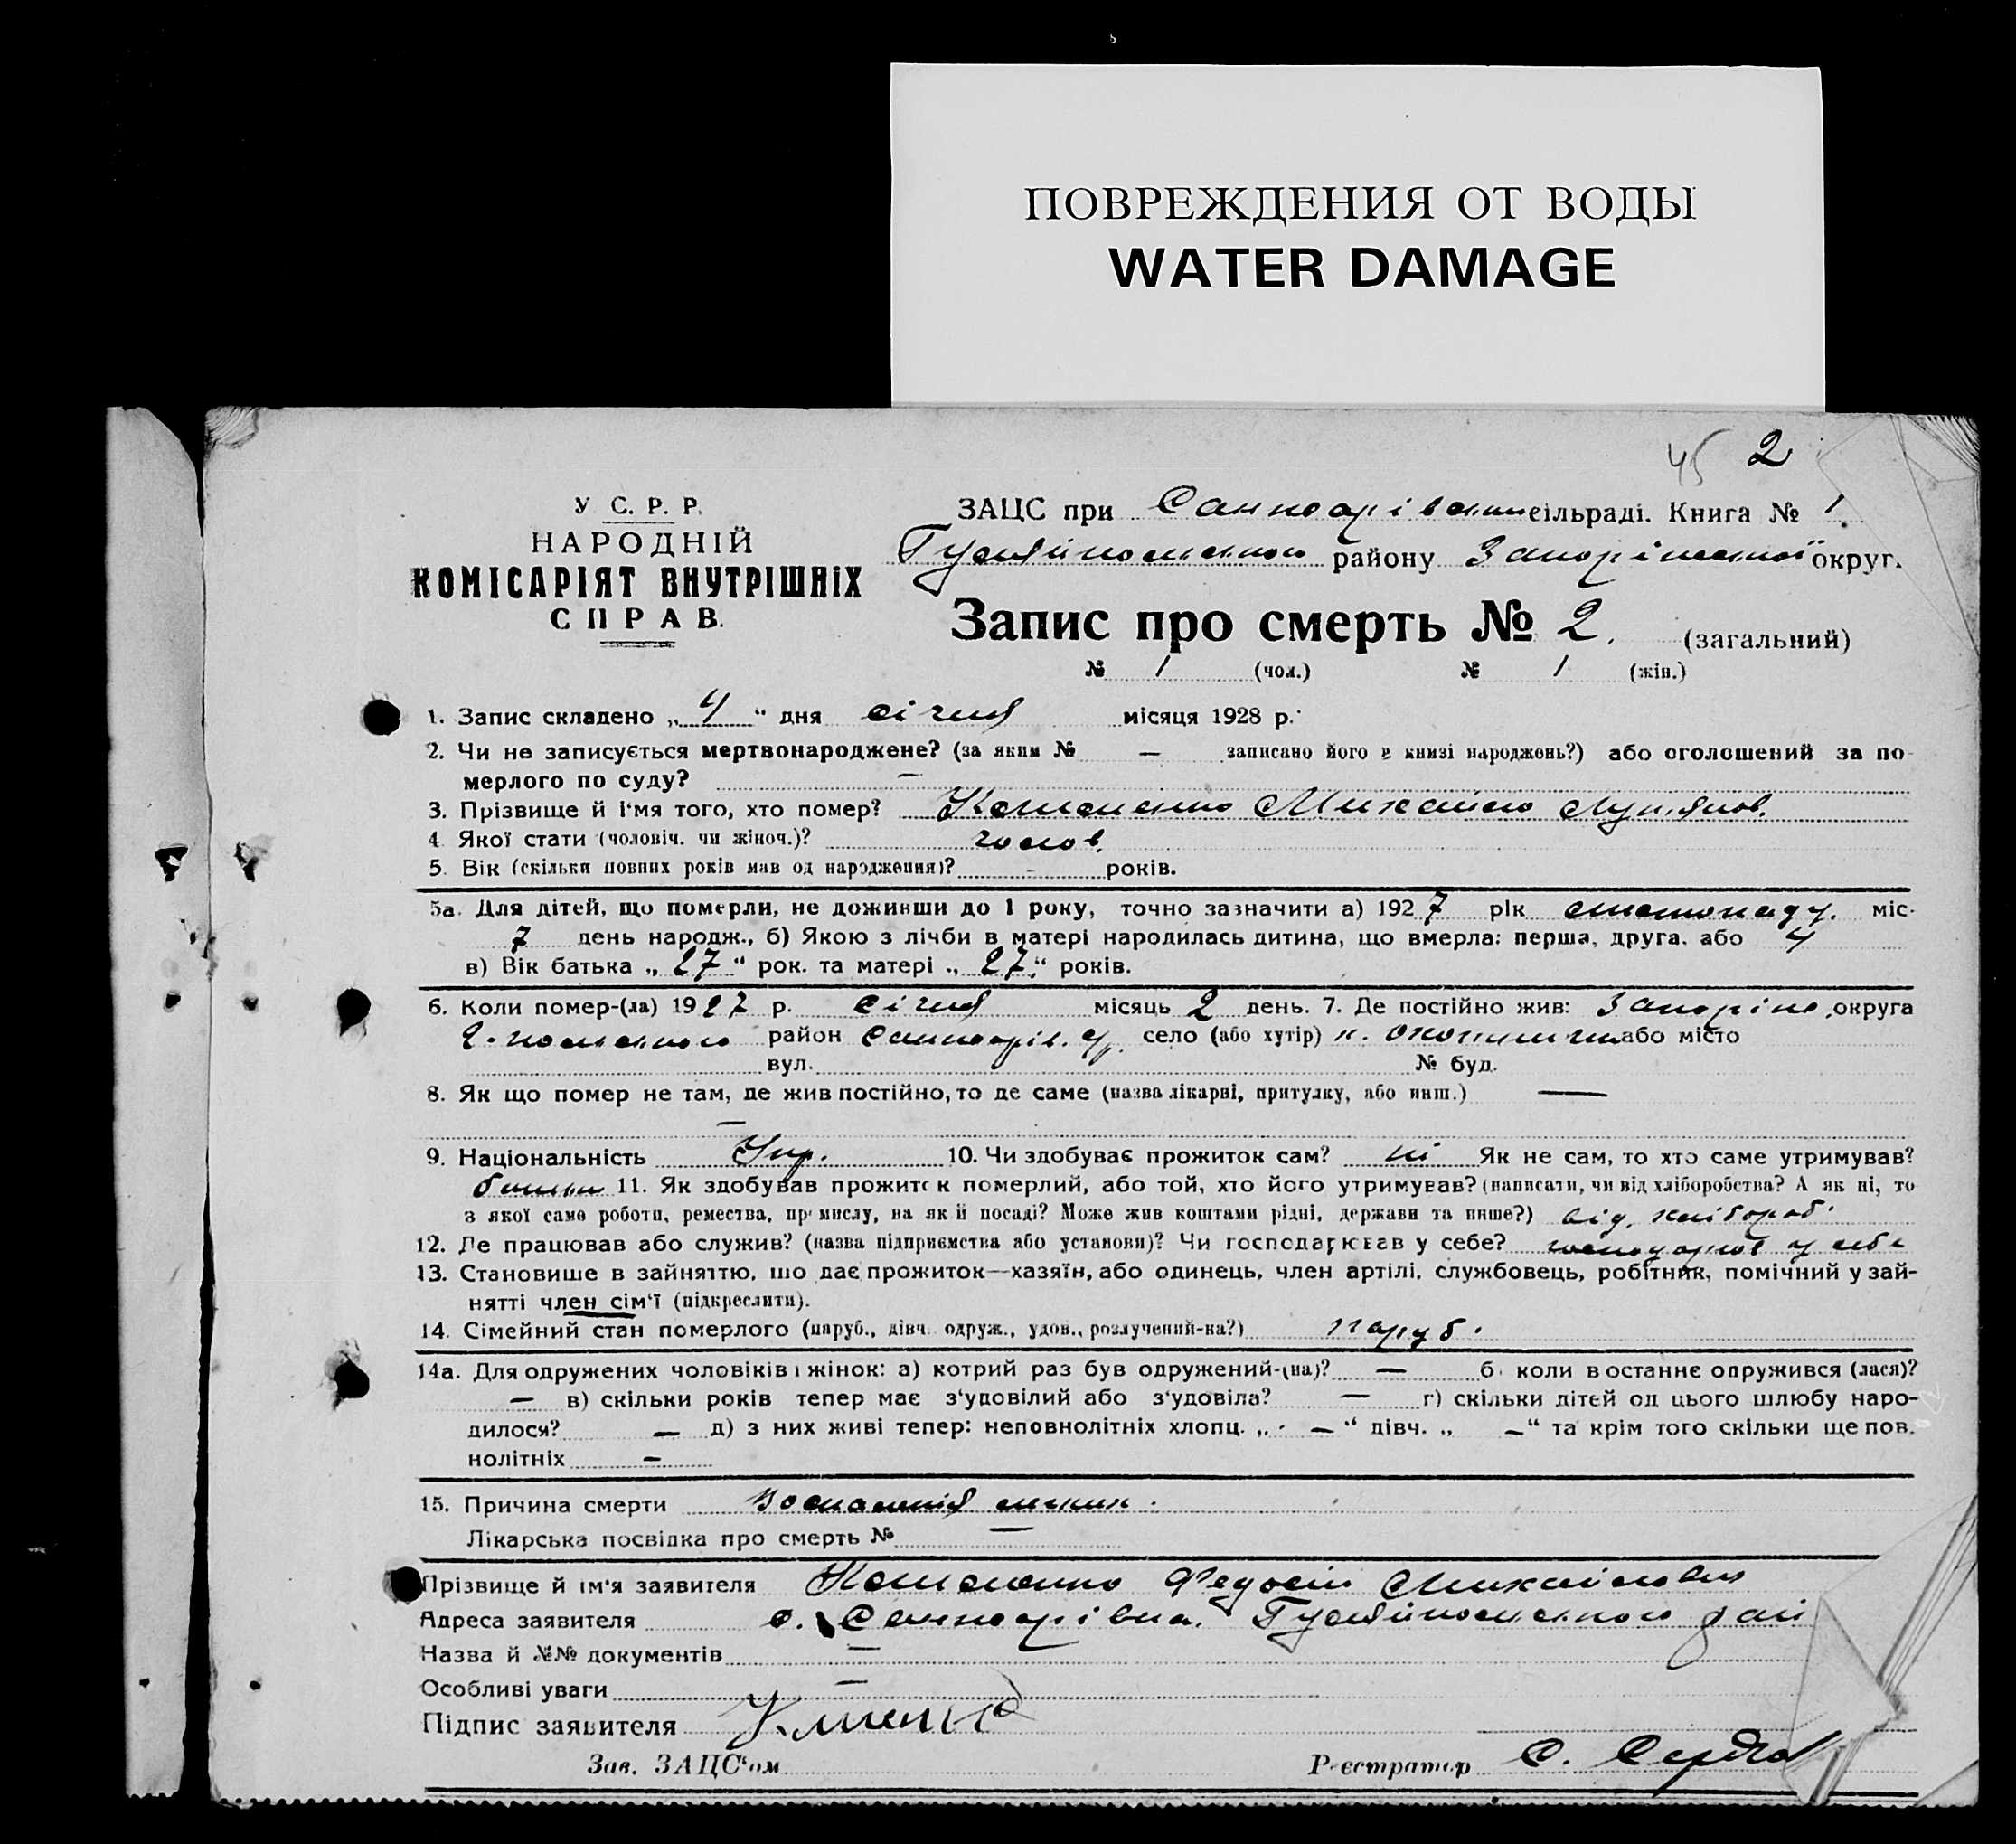 ПОВРЕЖДЕНИЯ ОТ ВОДЫ
WATER DAMAGE
45 2
У С. Р. Р.
НАРОДНІЙ
КОМІСАРІЯТ ВНУТРІШНІХ
СПРАВ.
ЗАЦС при сільраді. Книга № 1
Гуляйпольського району Запорізької округ.
Запис про смерть № 2. (загальний)
№ 1 (чол.) № 1 (жін.)
1. Запис складено „ 4 “ дня січня місяця 1928 р.
2. Чи не записується мертвонароджене? (за яким № — записано його в книзі народжень?) або оголошений за по-
мерлого по суду? —
3. Прізвище й ім'я того, хто помер? Михайло
4. Якої стати (чоловіч. чи жіноч.)? чолов.
5. Вік (скільки повних років мав од народження)? - років.
5а. Для дітей, що померли, не доживши до 1 року, точно зазначити а) 1927 рік листопаду. міс.
7 день народж., б) Якою з лічби в матері народилась дитина, що вмерла: перша, друга, або 4
в) Вік батька „ 27 “ рок. та матері „ 27 “ років.
6. Коли помер-(ла) 1927 р. січня місяць 2 день. 7. Де постійно жив: Запоріж. округа
Г-польського район село (або хутір) або місто
вул. № буд.
8. Як що помер не там, де жив постійно, то де саме (назва лікарні, притулку, або инш.) —
—
9. Національність Укр. 10. Чи здобував прожиток сам? ні Як не сам, то хто саме утримував?
батьки 11. Як здобував прожиток померлий, або той, хто його утримував? (написати, чи від хліборобства? А як ні, то
з якої саме роботи, ремества, промислу, на якій посаді? Може жив коштами рідні, держави та инше?) від. хлібороб.
12. Де працював або служив? (назва підприємства або установи)? Чи господарював у себе? господарював у себе
13. Становище в зайняттю, що дає прожиток—хазяїн, або одинець, член артілі, службовець, робітник, помічний у зай-
нятті член сім'ї (підкреслити).
14. Сімейний стан померлого (паруб., дівч. одруж., удов., розлучений-ка?) паруб.
14а. Для одружених чоловіків і жінок: а) котрий раз був одружений-(на)? — б) коли в останнє одружився (лася)?
— в) скільки років тепер має з'удовілий або з'удовіла? — г) скільки дітей од цього шлюбу наро-
дилося? — д) з них живі тепер: неповнолітніх хлопц. „ — “ дівч. „ — “ та крім того скільки ще пов.
нолітніх —
15. Причина смерти Воспаленія легких.
Лікарська посвідка про смерть № —
Прізвище й ім'я заявителя Федосій Михайлович
Адреса заявителя с. Гуляйпольського рай
Назва й №№ документів —
Особливі уваги —
Підпис заявителя
Зав. ЗАЦС'ом Реєстратор С.